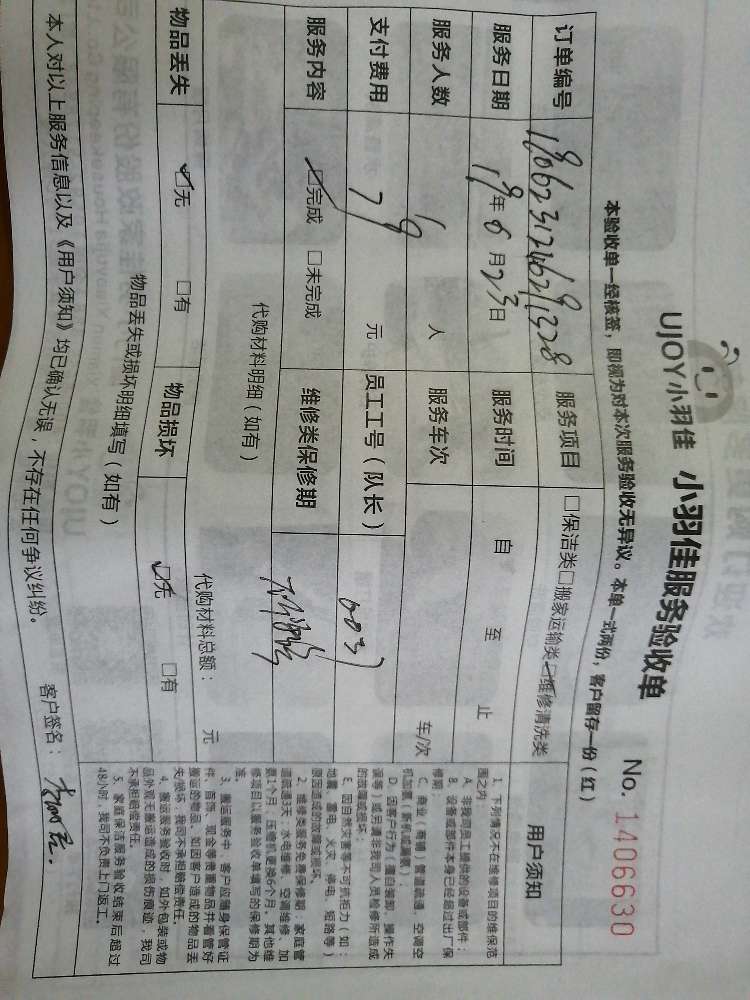 UJOY小羽佳 小羽佳服务验收单
No. 1406630
本验收单一经核签，即视为对本次服务验收无异议。本单一式两份，客户留存一份（红）
订单编号
服务项目 □保洁类□搬家运输类☑维修清洗类
服务日期 19年6月23日 服务时间 自 至 止
服务人数 1 人 服务车次 车/次
支付费用 79 元 员工工号（队长）
服务内容 ☑完成 □未完成 维修类保修期
代购材料明细（如有） 代购材料总额： 元
物品丢失 ☑无 □有 物品损坏 ☑无 □有
物品丢失或损坏明细填写（如有）
本人对以上服务信息以及《用户须知》均已确认无误，不存在任何争议纠纷。 客户签名：
用户须知
1、下列情况不在维修项目的维保范
围之内：
A、非我司员工提供的设备或部件；
B、设备或部件本身已经超过出厂保
修期；
C、商业（商铺）管道疏通、空调空
机加氟（新机或漏氟）；
D、因客户行为（擅自装卸、操作失
误等）或另请非我司人员检修所造成
的故障或损坏；
E、因自然灾害等不可抗拒力（如：
地震、雷电、火灾、停电、短路等）
原因造成的故障或损坏。
2、维修类服务免费保修期：家庭管
道疏通3天、水电维修、空调维修、加
氟1个月，压缩机更换6个月。其他维
修项目以服务验收单填写的保修期为
准。
3、搬运服务中，客户应随身保管证
件、首饰、现金等贵重物品并看管好
搬运的物品。如因客户造成的物品丢
失/损坏，我司不承担赔偿责任。
4、搬运服务验收时，如外包装或物
品外观无搬运造成的损伤痕迹，我司
不承担赔偿责任。
5、家庭保洁服务验收结束后超过
48小时，我司不负责上门返工。